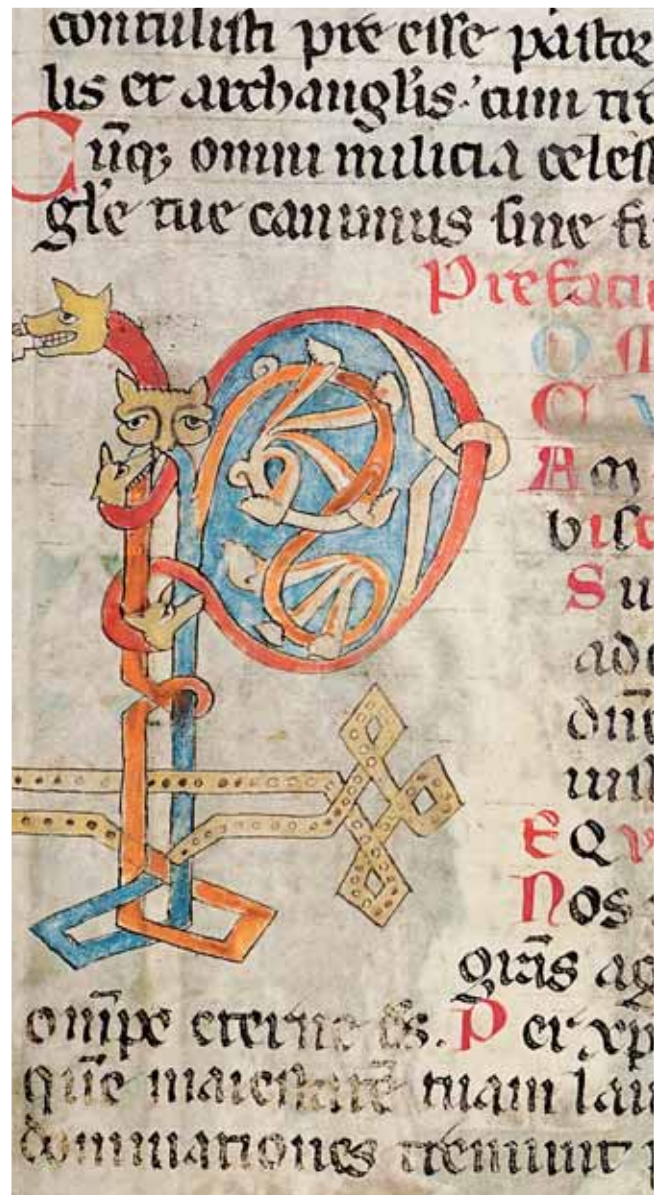 contulisti pre esse pastor
lis et archanglis. cum
Cūq; omni milicia celes
gl̄e tue canimus sine fi
Prefacio
P O M
C V
Am
visc
Su
ade
dn̄e
EQV
Nos
grās ag
omp̄e eterne ds̄. Per xp̄
quē maiestatē tuam lau
dominationes tremunt